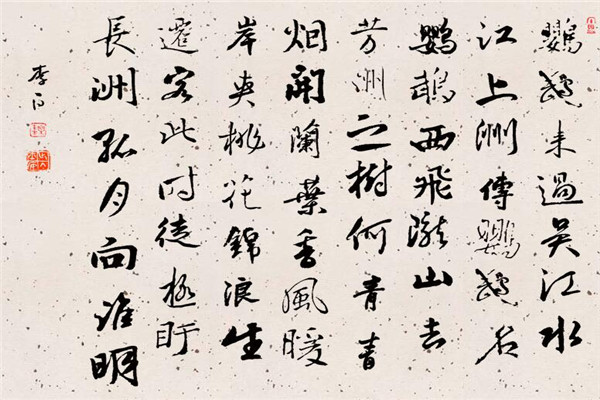 鸚鵡来過吴江水
江上洲傳鸚鵡名
鸚鵡西飛隴山去
芳洲之樹何青青
烟開蘭葉香風暖
岸夾桃花錦浪生
遷客此时徒極盱
長洲孤月向誰明
李白